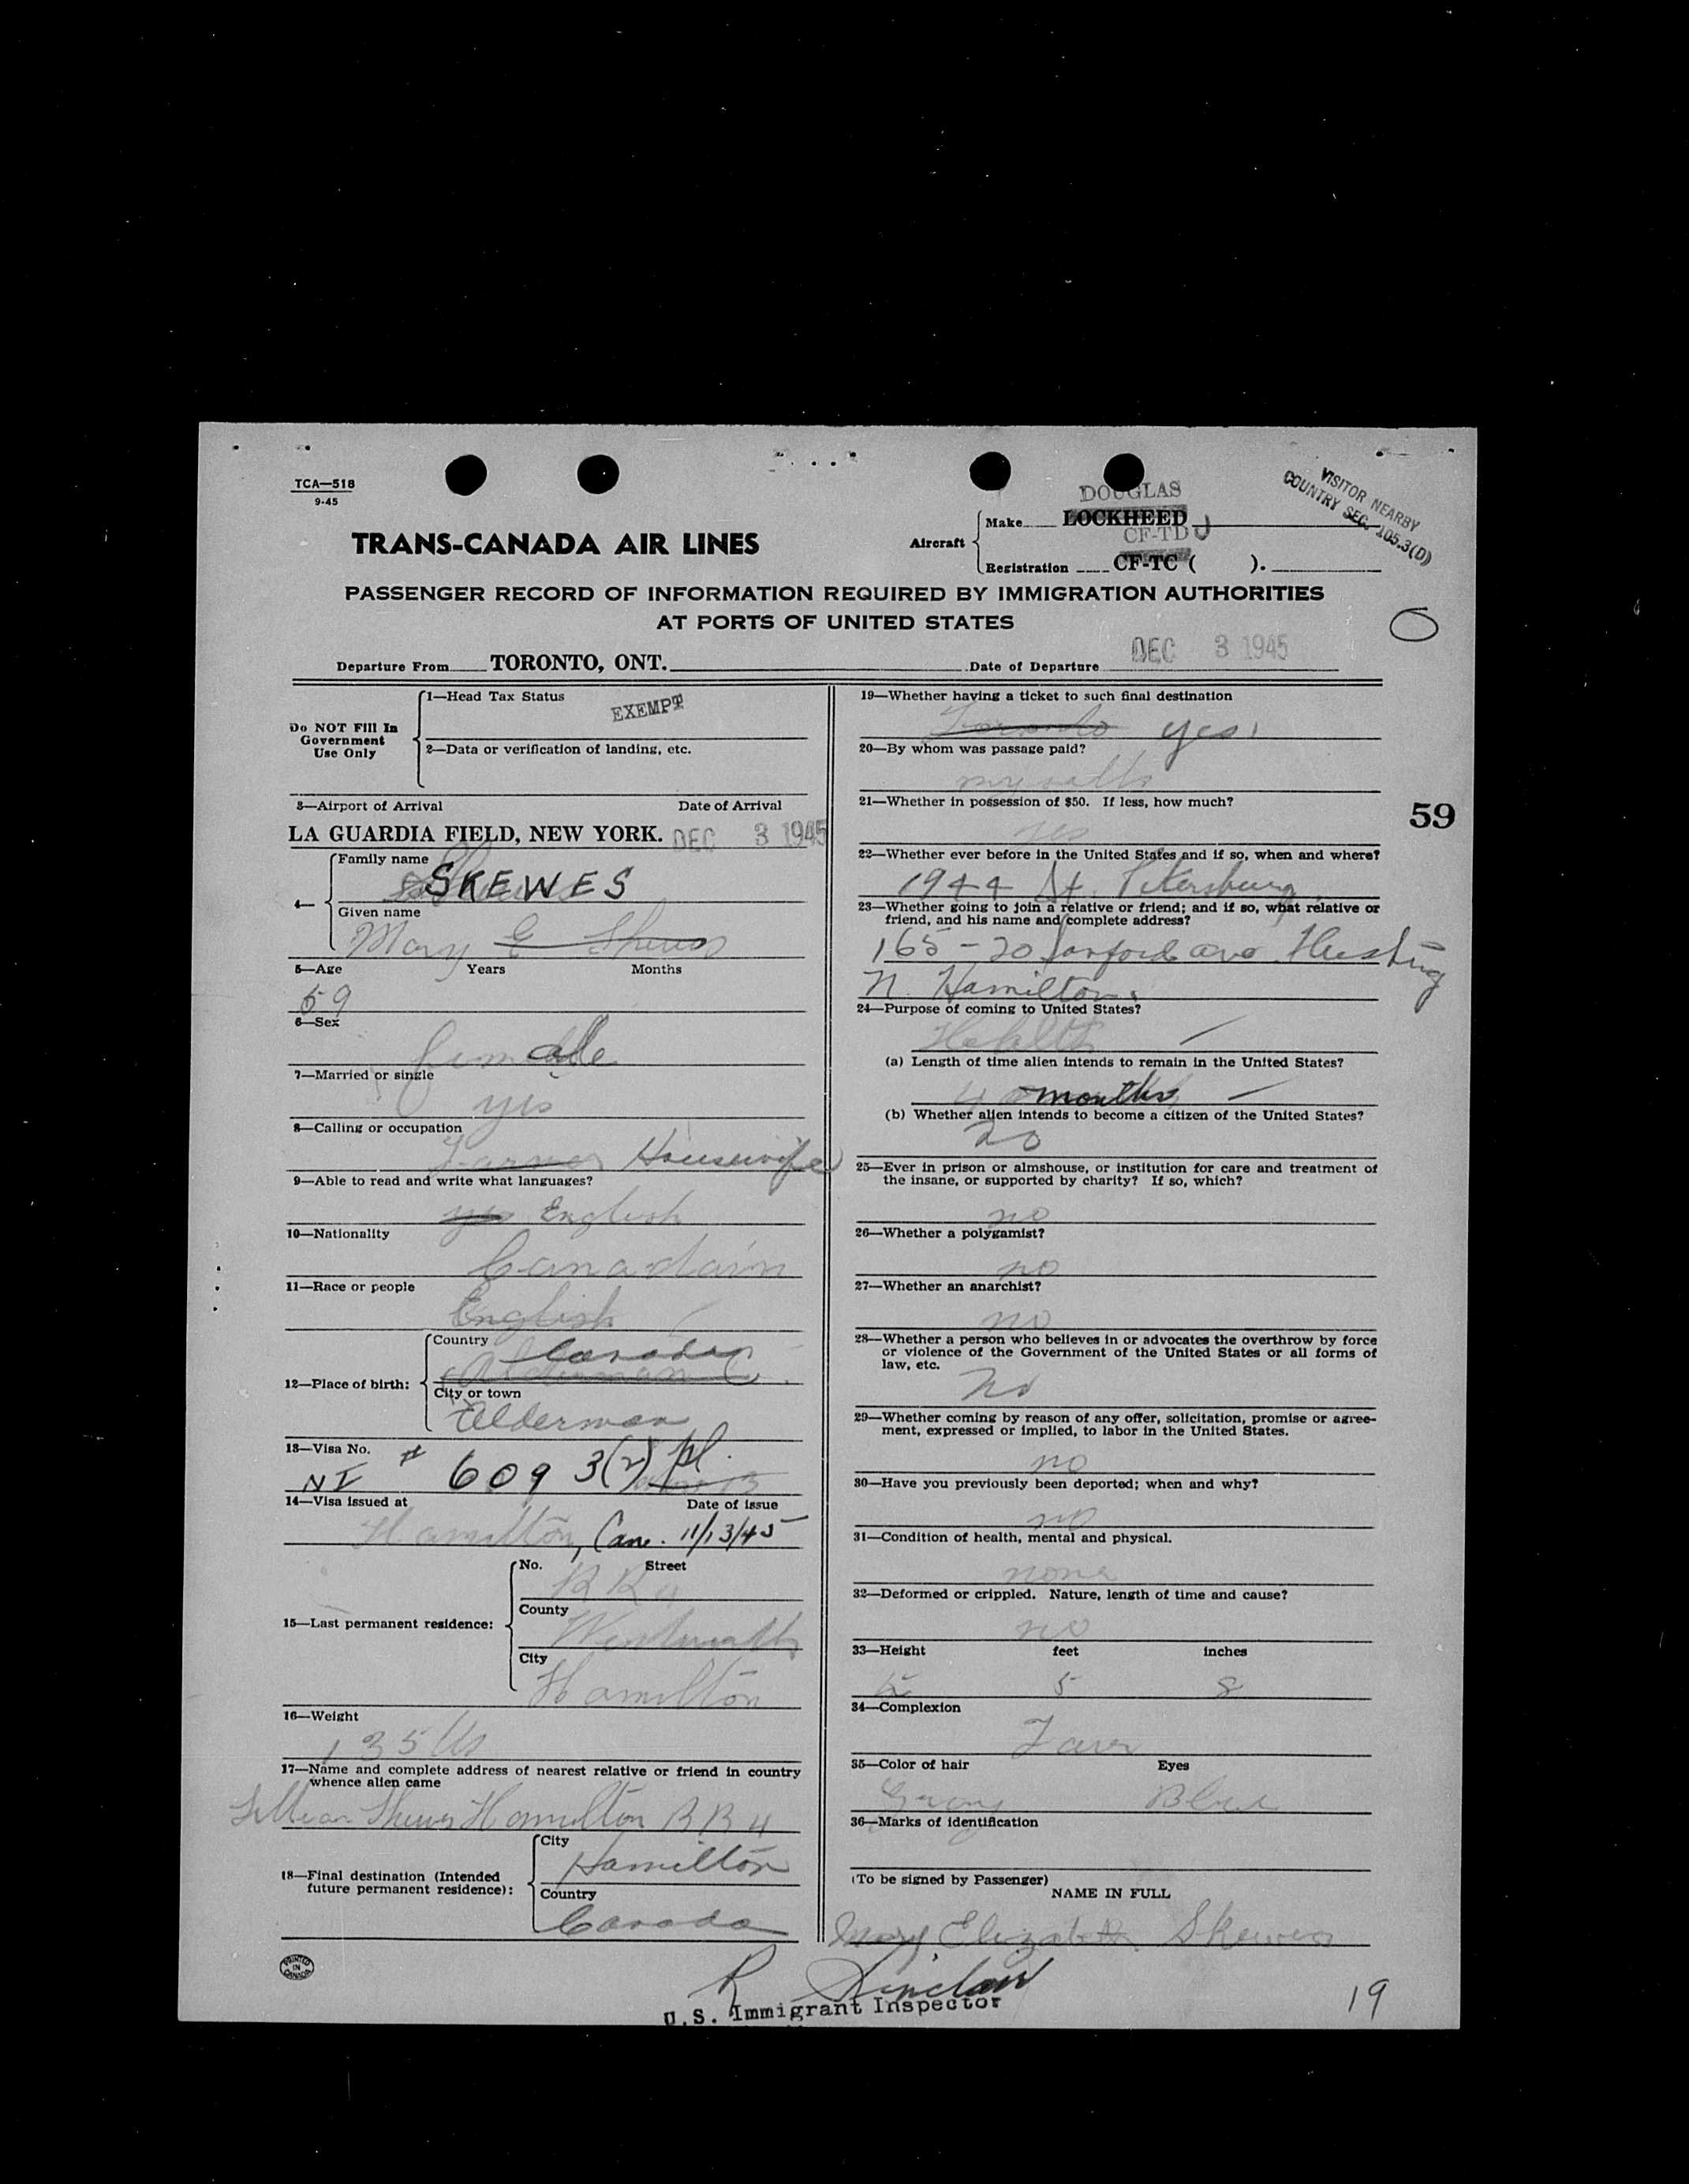 TCA—518
9-45
DOUGLAS
Make LOCKHEED
CF-TD J
Aircraft
Registration CF-TC ( ).
VISITOR NEARBY
COUNTRY SEC. 105.3(D)
TRANS-CANADA AIR LINES
PASSENGER RECORD OF INFORMATION REQUIRED BY IMMIGRATION AUTHORITIES
AT PORTS OF UNITED STATES
O
Departure From TORONTO, ONT. Date of Departure DEC 3 1945
Do NOT Fill In
Government
Use Only
1—Head Tax Status
EXEMPT
2—Data or verification of landing, etc.
3—Airport of Arrival Date of Arrival
LA GUARDIA FIELD, NEW YORK. DEC 3 1945
4—
Family name
SKEWES
Given name
Mary E Skewes
5—Age Years Months
59
6—Sex
female
7—Married or single
yes
8—Calling or occupation
Farmer Housewife
9—Able to read and write what languages?
yes English
10—Nationality
Canadain
11—Race or people
English
12—Place of birth:
Country
Canada
City or town
Alderman
13—Visa No.
NI # 609 3(2) pl.
14—Visa issued at Date of issue
Hamilton, Can. 11/13/45
15—Last permanent residence:
No. Street
R R 4
County
Wentworth
City
Hamilton
16—Weight
135 lbs
17—Name and complete address of nearest relative or friend in country
whence alien came
Lillian Skewes Hamilton R R 4
18—Final destination (Intended
future permanent residence):
City
Hamilton
Country
Canada
PRINTED
IN
CANADA
19—Whether having a ticket to such final destination
Toronto yes
20—By whom was passage paid?
my salfe
21—Whether in possession of $50. If less, how much?
yes
59
22—Whether ever before in the United States and if so, when and where?
1944 St. Petersburg
23—Whether going to join a relative or friend; and if so, what relative or
friend, and his name and complete address?
165-20 Sanford ave Flushing
N. Hamilton
24—Purpose of coming to United States?
Health
(a) Length of time alien intends to remain in the United States?
4 months
(b) Whether alien intends to become a citizen of the United States?
no
25—Ever in prison or almshouse, or institution for care and treatment of
the insane, or supported by charity? If so, which?
no
26—Whether a polygamist?
no
27—Whether an anarchist?
no
28—Whether a person who believes in or advocates the overthrow by force
or violence of the Government of the United States or all forms of
law, etc.
no
29—Whether coming by reason of any offer, solicitation, promise or agree-
ment, expressed or implied, to labor in the United States.
no
30—Have you previously been deported; when and why?
no
31—Condition of health, mental and physical.
none
32—Deformed or crippled. Nature, length of time and cause?
no
33—Height feet inches
5 8
34—Complexion
Fair
35—Color of hair Eyes
Gray Blue
36—Marks of identification
(To be signed by Passenger)
NAME IN FULL
Mary Elizabeth Skewes
R Sinclair
U.S. Immigrant Inspector
19